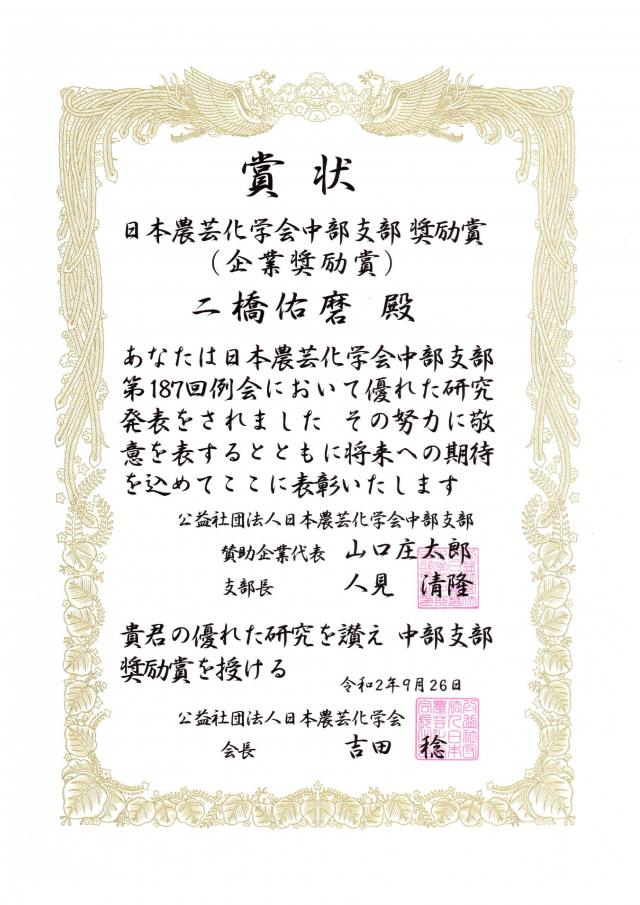 賞状
日本農芸化学会中部支部 奨励賞
（企業奨励賞）
二橋佑磨 殿
あなたは日本農芸化学会中部支部
第187回例会において優れた研究
発表をされました その努力に敬
意を表するとともに将来への期待
を込めてここに表彰いたします
公益社団法人日本農芸化学会中部支部
賛助企業代表 山口庄太郎
支部長 人見 清隆
貴君の優れた研究を讃え 中部支部
奨励賞を授ける
令和2年9月26日
公益社団法人日本農芸化学会
会長 吉田 稔